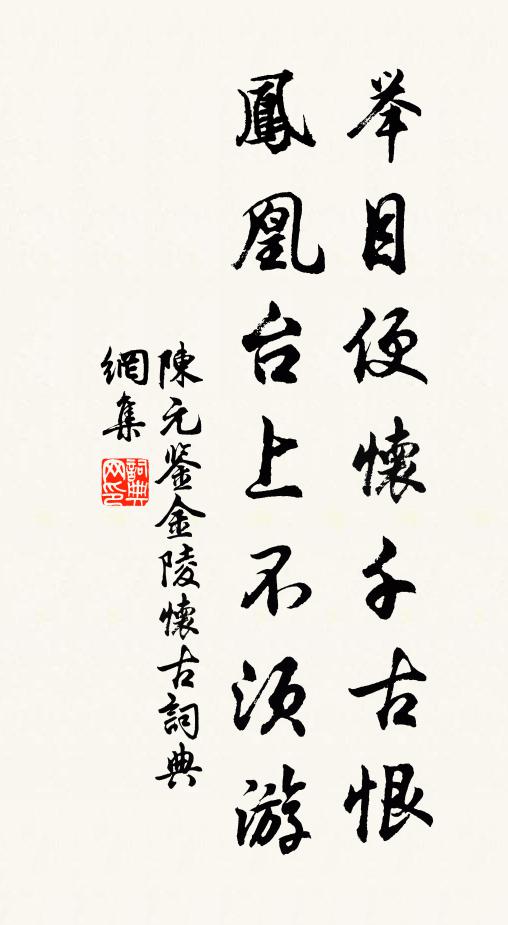 举目便懷千古恨
鳳凰台上不須游
陳元鉴金陵懷古詞典
網集
詞典网印